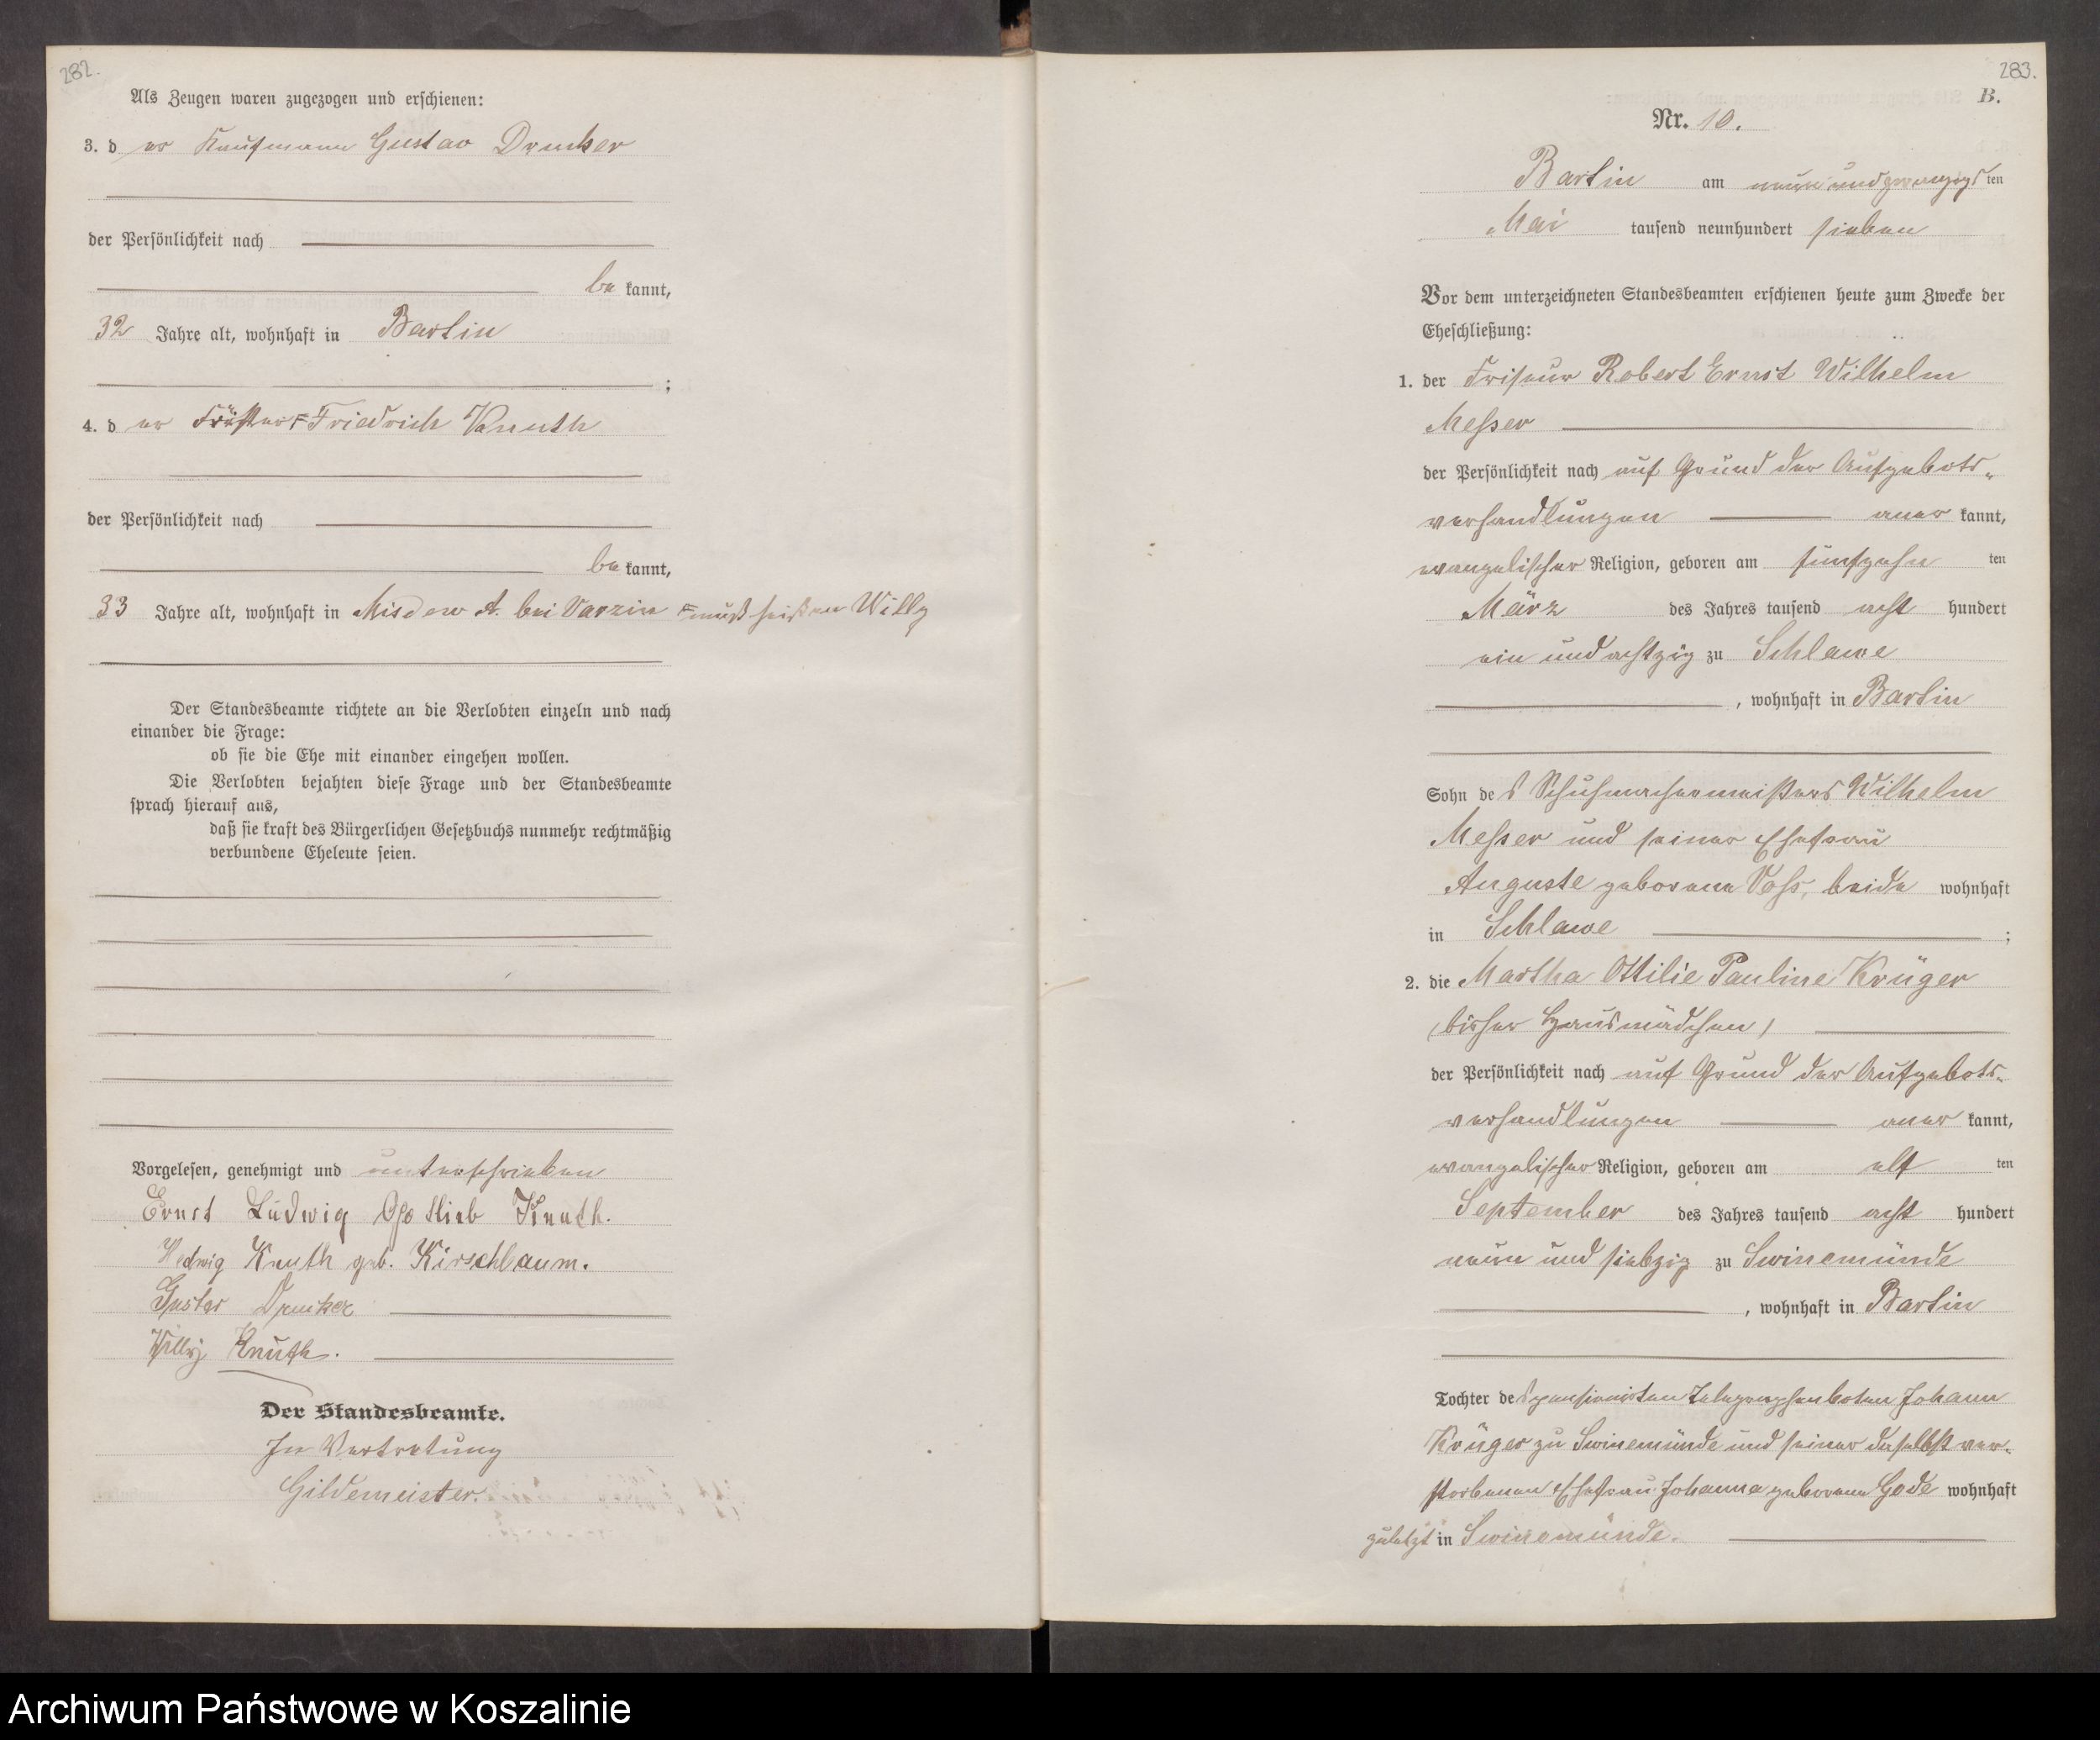 282.
Als Zeugen waren zugezogen und erschienen:
3. der Kaufmann Gustav Drucker
der Persönlichkeit nach
bekannt,
32 Jahre alt, wohnhaft in Bartin
;
4. der Förster ⌐ Friedrich Knuth
der Persönlichkeit nach
bekannt,
33 Jahre alt, wohnhaft in Misdow A. bei Varzin ⌐ muß heißen Willy
Der Standesbeamte richtete an die Verlobten einzeln und nach
einander die Frage:
ob sie die Ehe mit einander eingehen wollen.
Die Verlobten bejahten diese Frage und der Standesbeamte
sprach hierauf aus,
daß sie kraft des Bürgerlichen Gesetzbuchs nunmehr rechtmäßig
verbundene Eheleute seien.
Vorgelesen, genehmigt und unterschrieben
Ernst Ludwig Gottlieb Knuth.
Hedwig Knuth geb. Kirschbaum.
Gustav
Willy Knuth.
Der Standesbeamte.
In Vertretung
Gildemeister.
283.
B.
Nr. 10.
Bartin am neunundzwanzigsten
Mai tausend neunhundert sieben
Vor dem unterzeichneten Standesbeamten erschienen heute zum Zwecke der
Eheschließung:
1. der Friseur Robert Ernst Wilhelm
Messer
der Persönlichkeit nach auf Grund der Aufgebots-
verhandlungen anerkannt,
evangelischer Religion, geboren am fünfzehnten
März des Jahres tausend achthundert
ein und achtzig zu Schlawe
, wohnhaft in Bartin
Sohn des Schuhmachermeisters Wilhelm
Messer und seiner Ehefrau
Auguste geborene Voss, beide wohnhaft
in Schlawe ;
2. die Martha Ottilie Pauline Krüger
(bisher Hausmädchen)
der Persönlichkeit nach auf Grund der Aufgebots-
verhandlungen anerkannt,
evangelischer Religion, geboren am elften
September des Jahres tausend achthundert
neun und siebzig zu Swinemünde
, wohnhaft in Bartin
Tochter des pensionirten Telegraphenboten Johann
Krüger zu Swinemünde und seiner daselbst ver-
storbenen Ehefrau Johanna geborene Gode wohnhaft
zuletzt in Swinemünde.
Archiwum Państwowe w Koszalinie